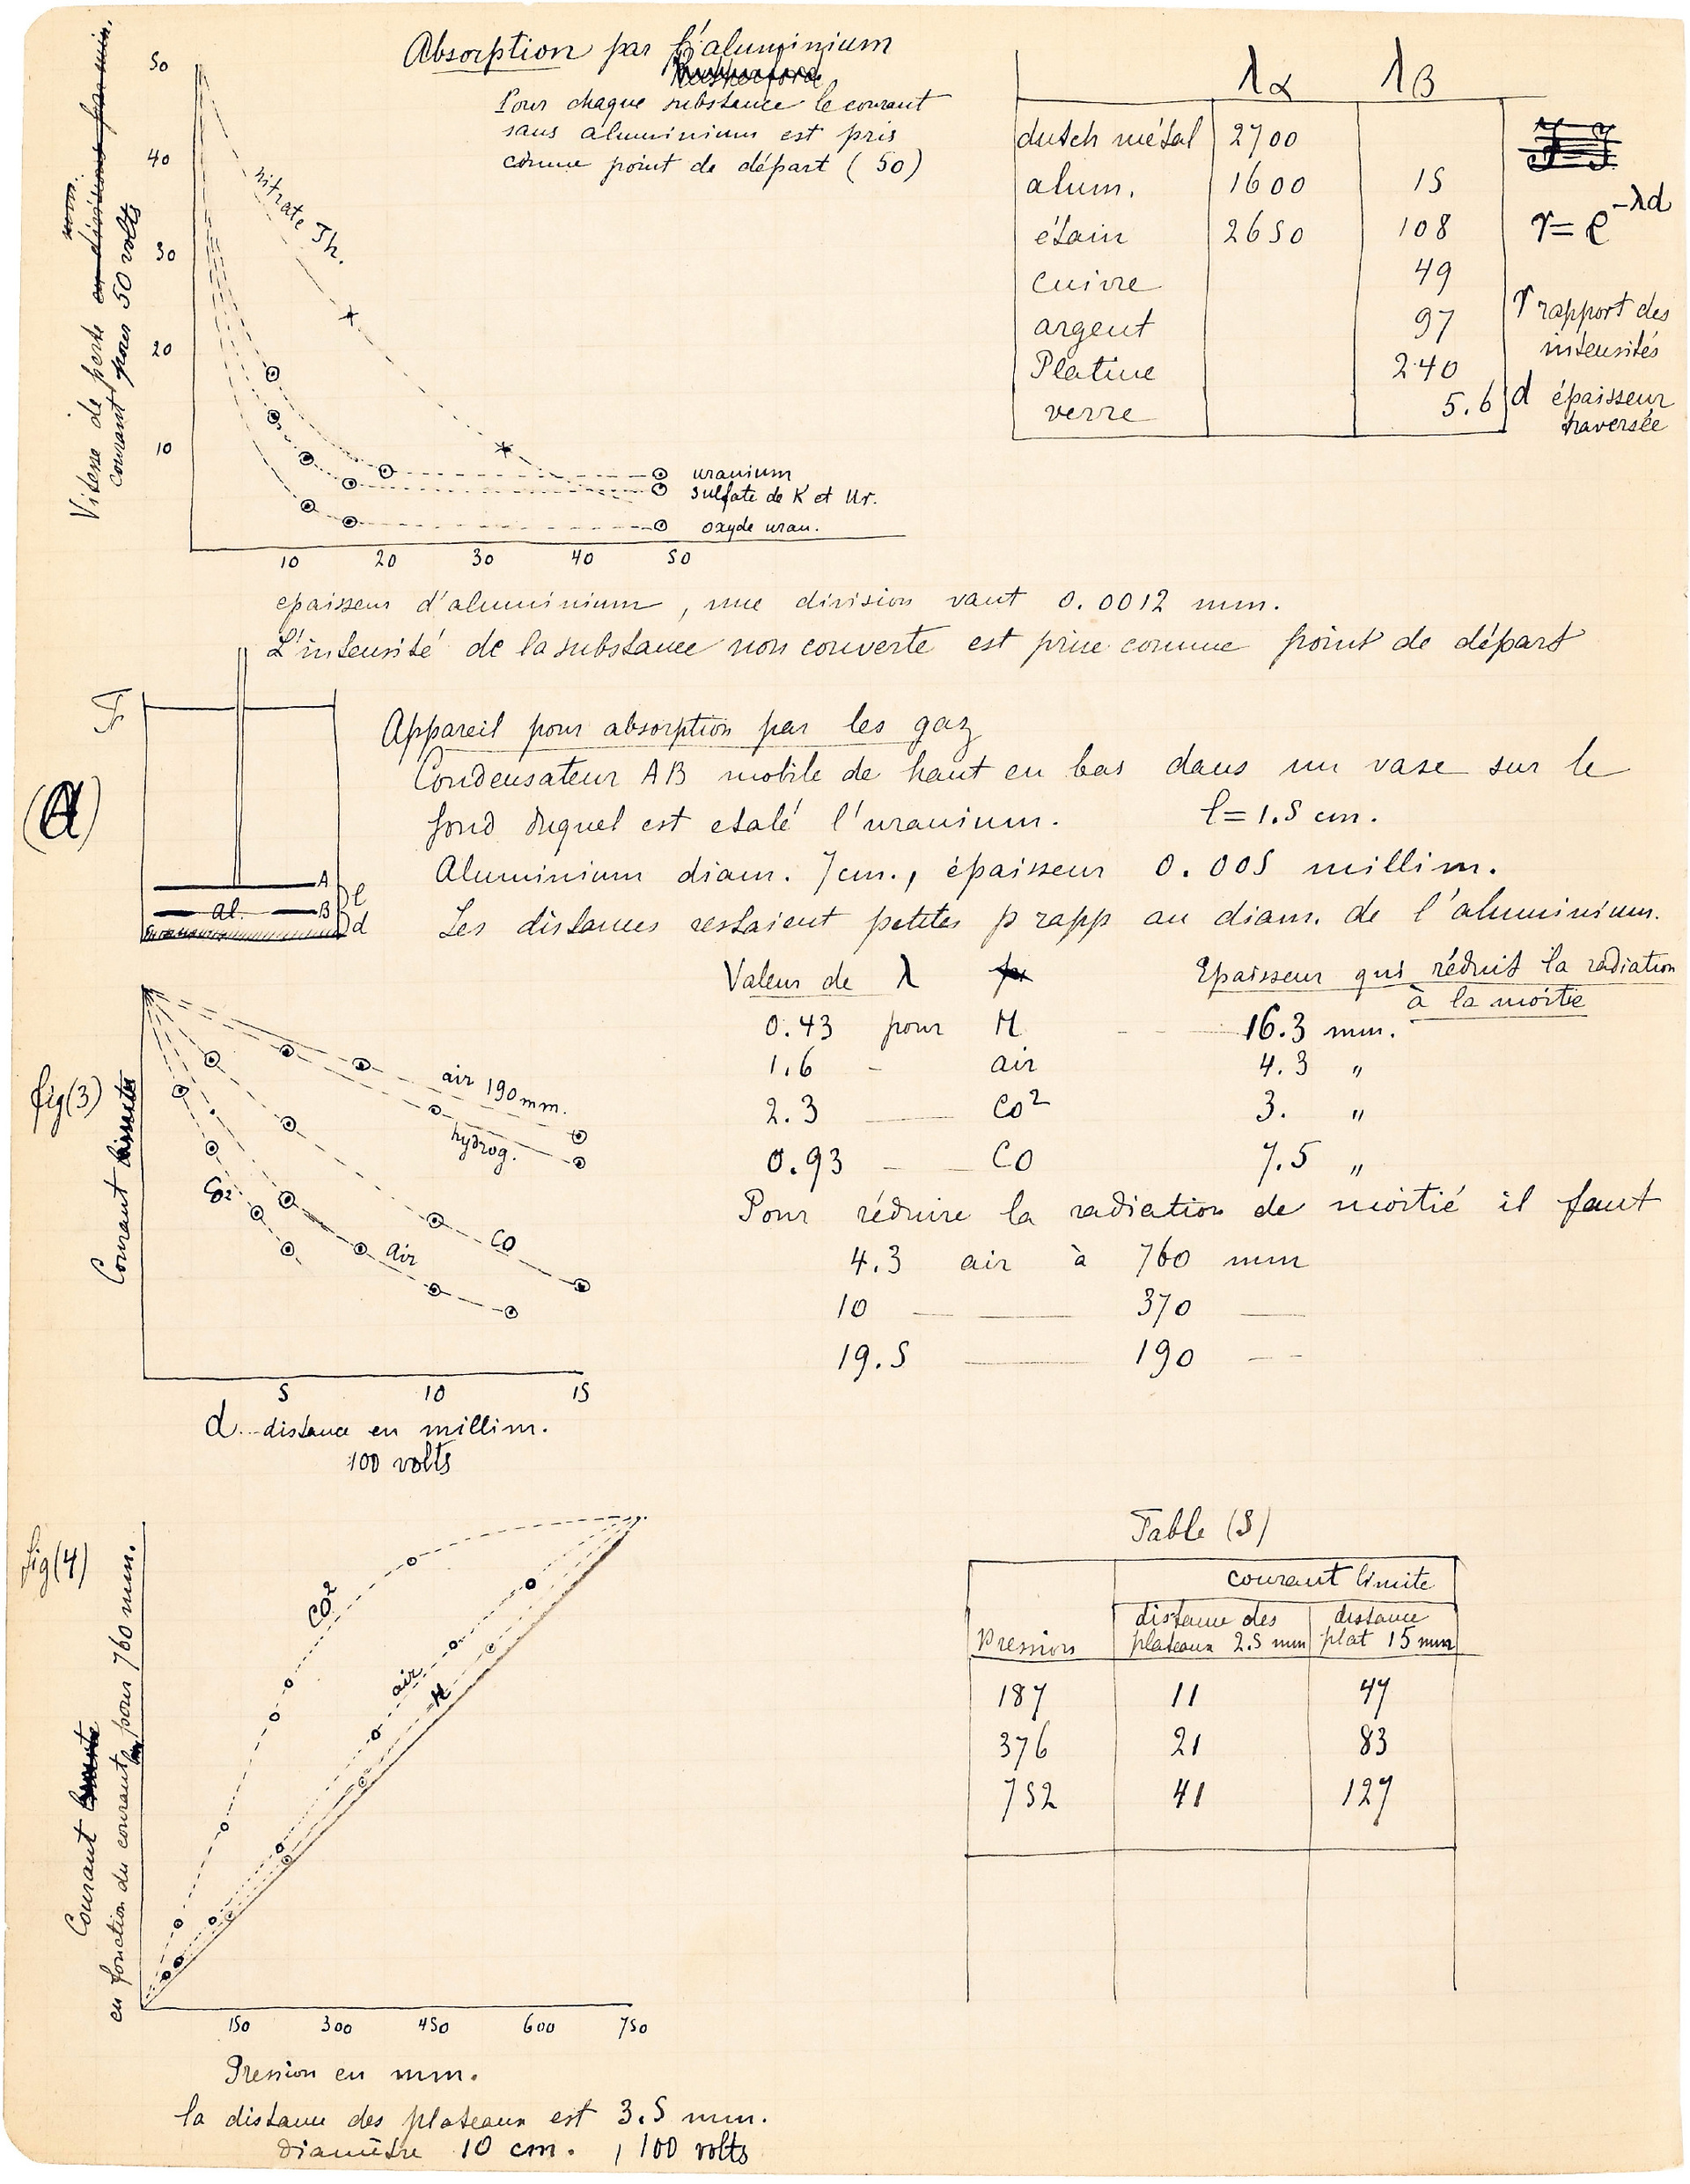 Absorption par l'aluminium
Pour chaque substance le courant
sans aluminium est pris
comme point de départ ( 50 )
Vitesse de perte
courant pour 50 volts
50
40
30
20
10
nitrate Th.
uranium
sulfate de K et Ur.
oxyde uran.
10 20 30 40 50
epaisseur d'aluminium, une division vaut 0.0012 mm.
L'intensité de la substance non couverte est prise comme point de départ
λα λβ
dutch métal 2700
alum. 1600 15
étain 2650 108
cuivre 49
argent 97
Platine 240
verre 5.6
r = e^-λd
r rapport des
intensités
d épaisseur
traversée
(A)
A
Al. B
l
d
Appareil pour absorption par les gaz
Condensateur AB mobile de haut en bas dans un vase sur le
fond duquel est etalé l'uranium. l = 1.5 cm.
Aluminium diam. 7cm., épaisseur 0.005 millim.
Les distances restaient petites p rapp au diam. de l'aluminium.
Valeur de λ Epaisseur qui réduit la radiation
à la moitié
0.43 pour H - - 16.3 mm.
1.6 - air 4.3 "
2.3 — CO² 3. "
0.93 - — CO 7.5 "
Pour réduire la radiation de moitié il faut
4.3 air à 760 mm
10 — — 370 —
19.5 — 190 —
fig(3)
Courant
air 190 mm.
hydrog.
CO²
CO
air
5 10 15
d...distance en millim.
100 volts
fig(4)
Courant
en fonction du courant pour 760 mm.
CO²
air
H
150 300 450 600 750
Pression en mm.
la distance des plateaux est 3.5 mm.
diamètre 10 cm. , 100 volts
Table (3)
courant limite
Pression distance des plateaux 2.5 mm distance plat 15 mm
187 11 47
376 21 83
752 41 127